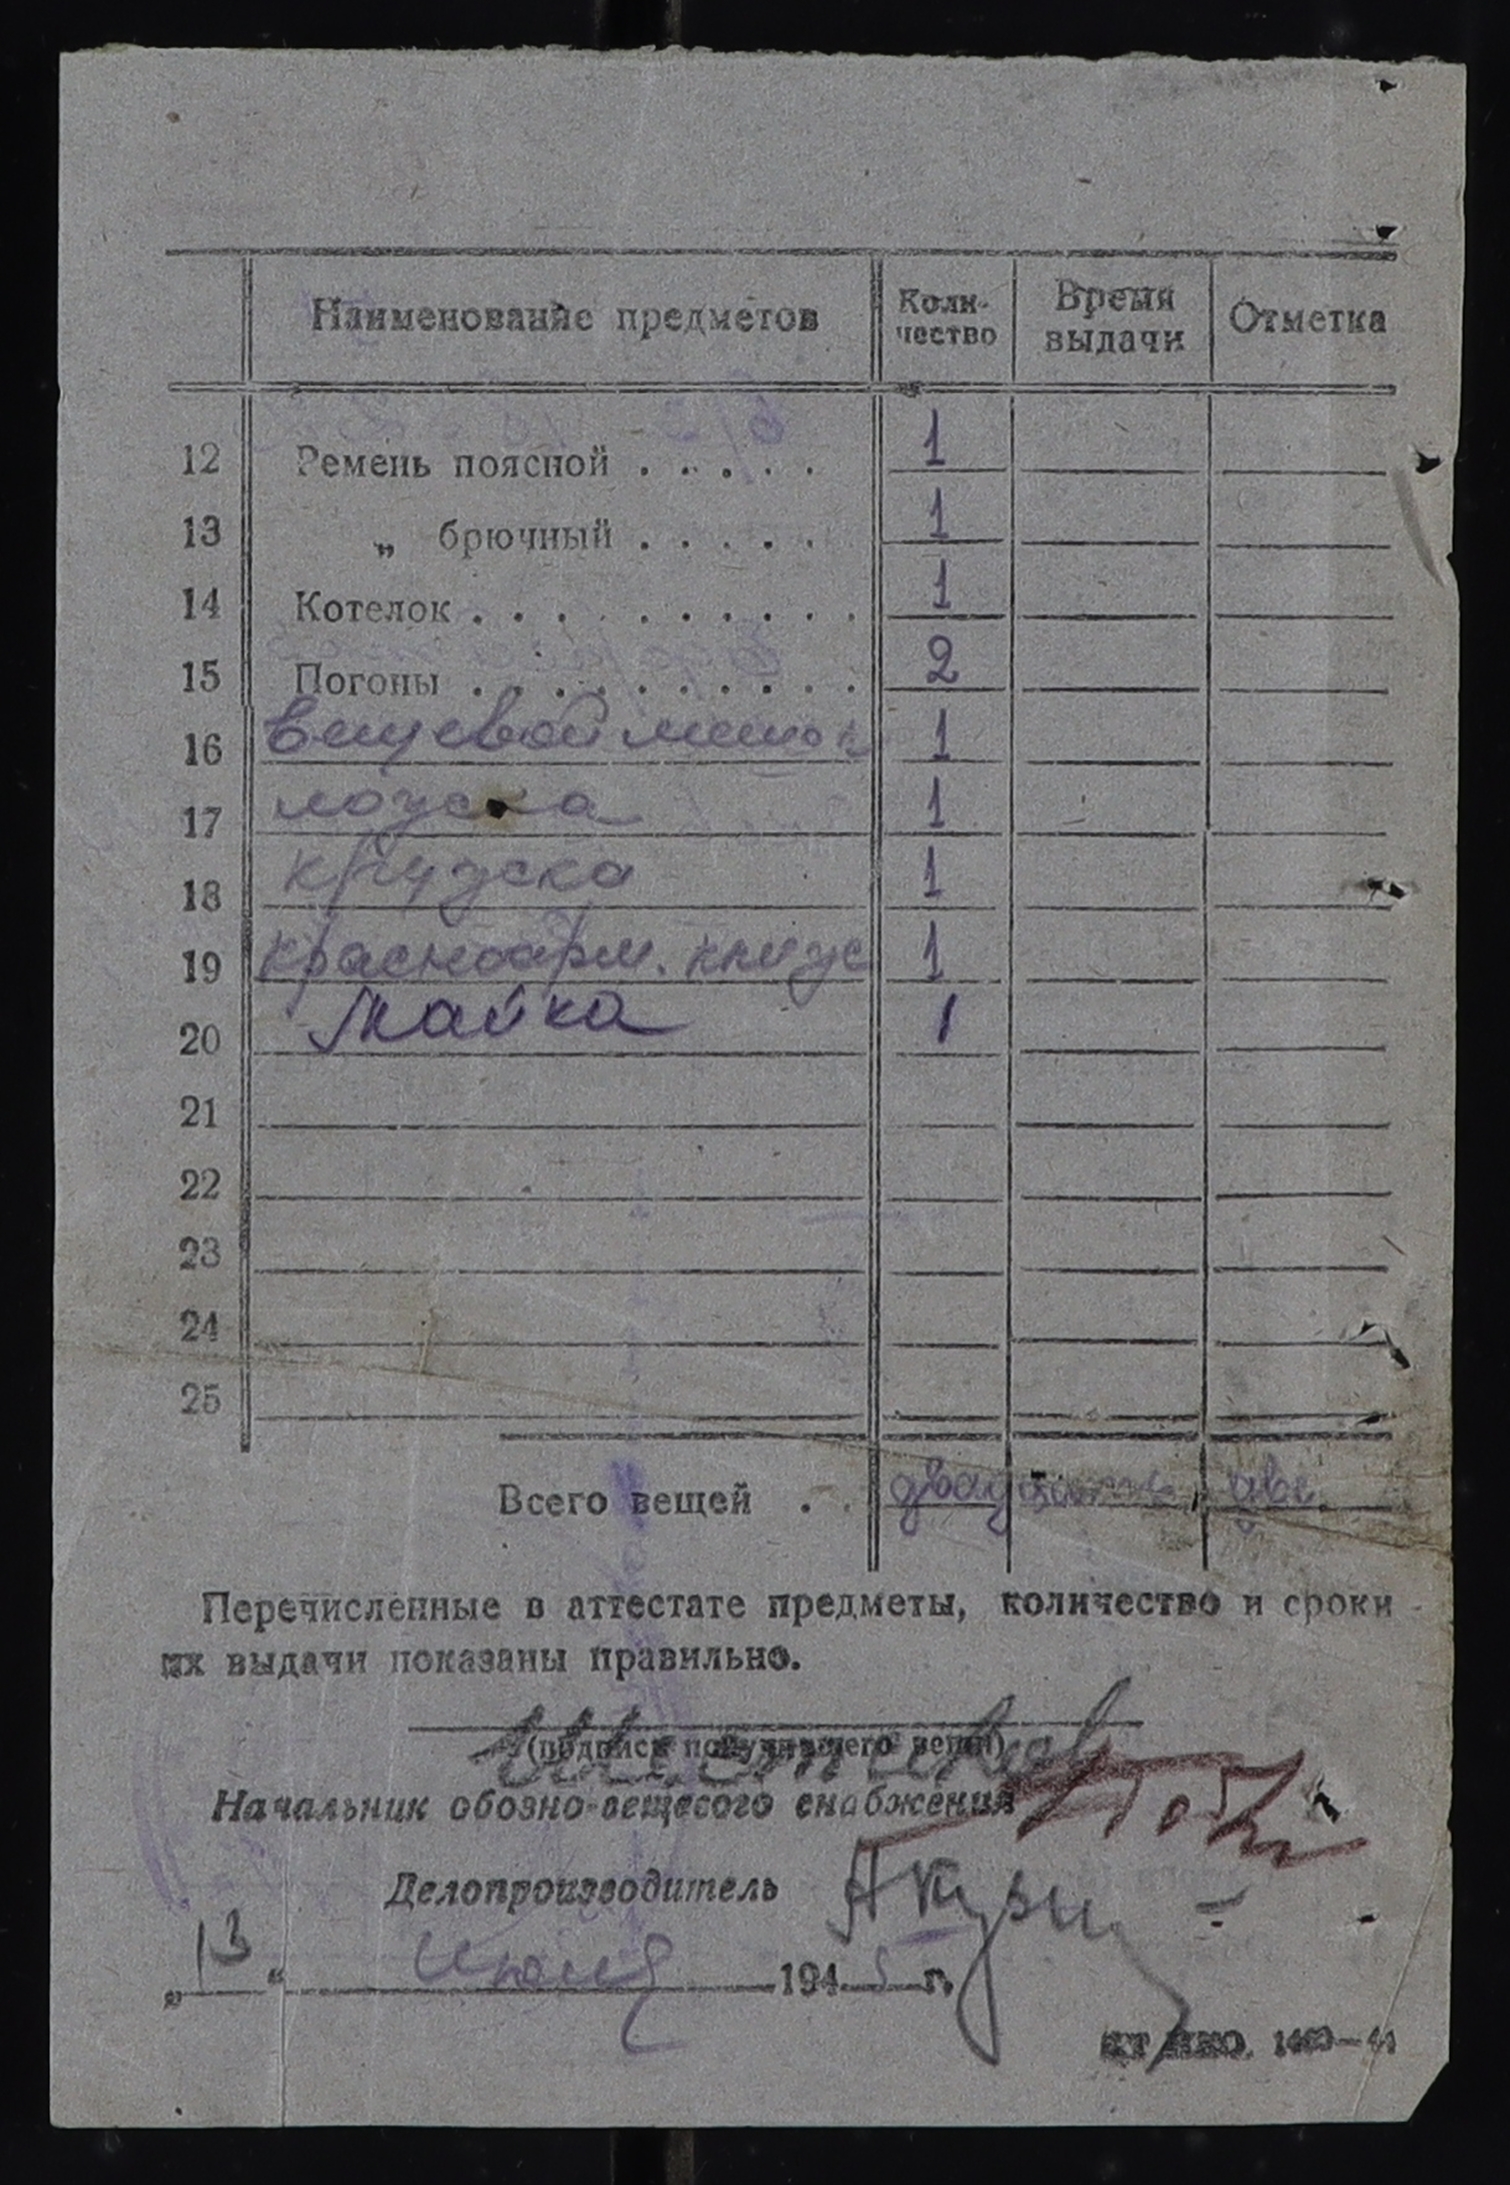 Наименование предметов Коли-чество Время выдачи Отметка
12 Ремень поясной . . . . . 1
13 „ брючный . . . . . 1
14 Котелок . . . . . . . . . . 1
15 Погоны . . . . . . . . . . 2
16 вещевой мешок 1
17 ложка 1
18 кружка 1
19 красноарм. книж 1
20 Майка 1
21
22
23
24
25
Всего вещей . . двадцать две
Перечисленные в аттестате предметы, количество и сроки
их выдачи показаны правильно.
(подпись получившего вещи)
Начальник обозно-вещевого снабжения
Делопроизводитель
„13“ июня 1945 г.